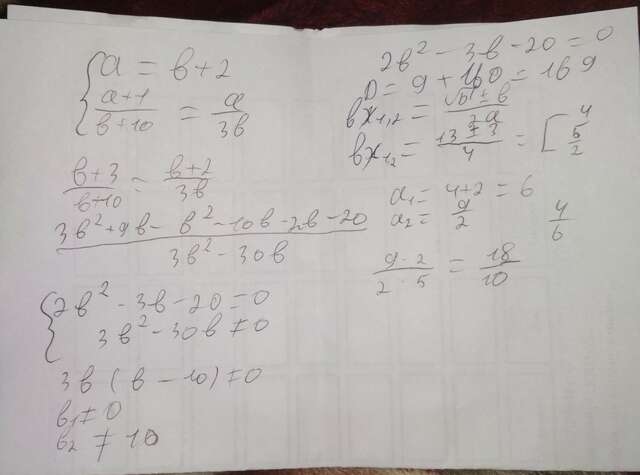 { a = в + 2
{ (a+1)/(в+10) = a/(3в)
(в+3)/(в+10) = (в+2)/(3в)
(3в² + 9в - в² - 10в - 2в - 20)/(3в² - 30в)
{ 2в² - 3в - 20 = 0
{ 3в² - 30в ≠ 0
3в (в - 10) ≠ 0
в₁ ≠ 0
в₂ ≠ 10
2в² - 3в - 20 = 0
D = 9 + 160 = 169
вx₁,₂ = (√D ± в)/(2a)
вx₁₂ = (13 ± 3)/4 = [ 4 5/2
a₁ = 4+2 = 6
a₂ = 9/2
4/6
(9·2)/(2·5) = 18/10